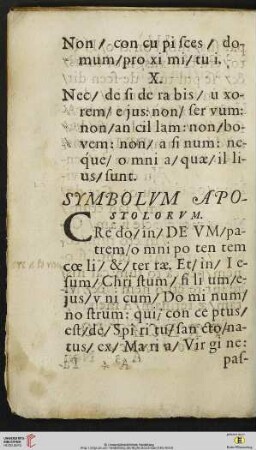 Non/ con cu pi sces/ do-
mum/pro xi mi/tu i.
X.
Nec/ de si de ra bis/ u xo-
rem/ ejus: non/ ser vum:
non/an cil lam: non/bo-
vem: non/ a si num: ne-
que/ o mni a/quæ/il li-
us/sunt.
SYMBOLVM APO-
STOLORVM.
CRe do/in/DE VM/pa-
trem/o mni po ten tem
cœ li/ &/ter ræ. Et/in/ I e-
sum/Chri stum/ fi li um/e-
jus/v ni cum/ Do mi num/
no strum: qui/con ce ptus/
est/de/Spi ri tu/san cto/na-
tus/ex/Ma ri a/Vir gi ne:
pas-